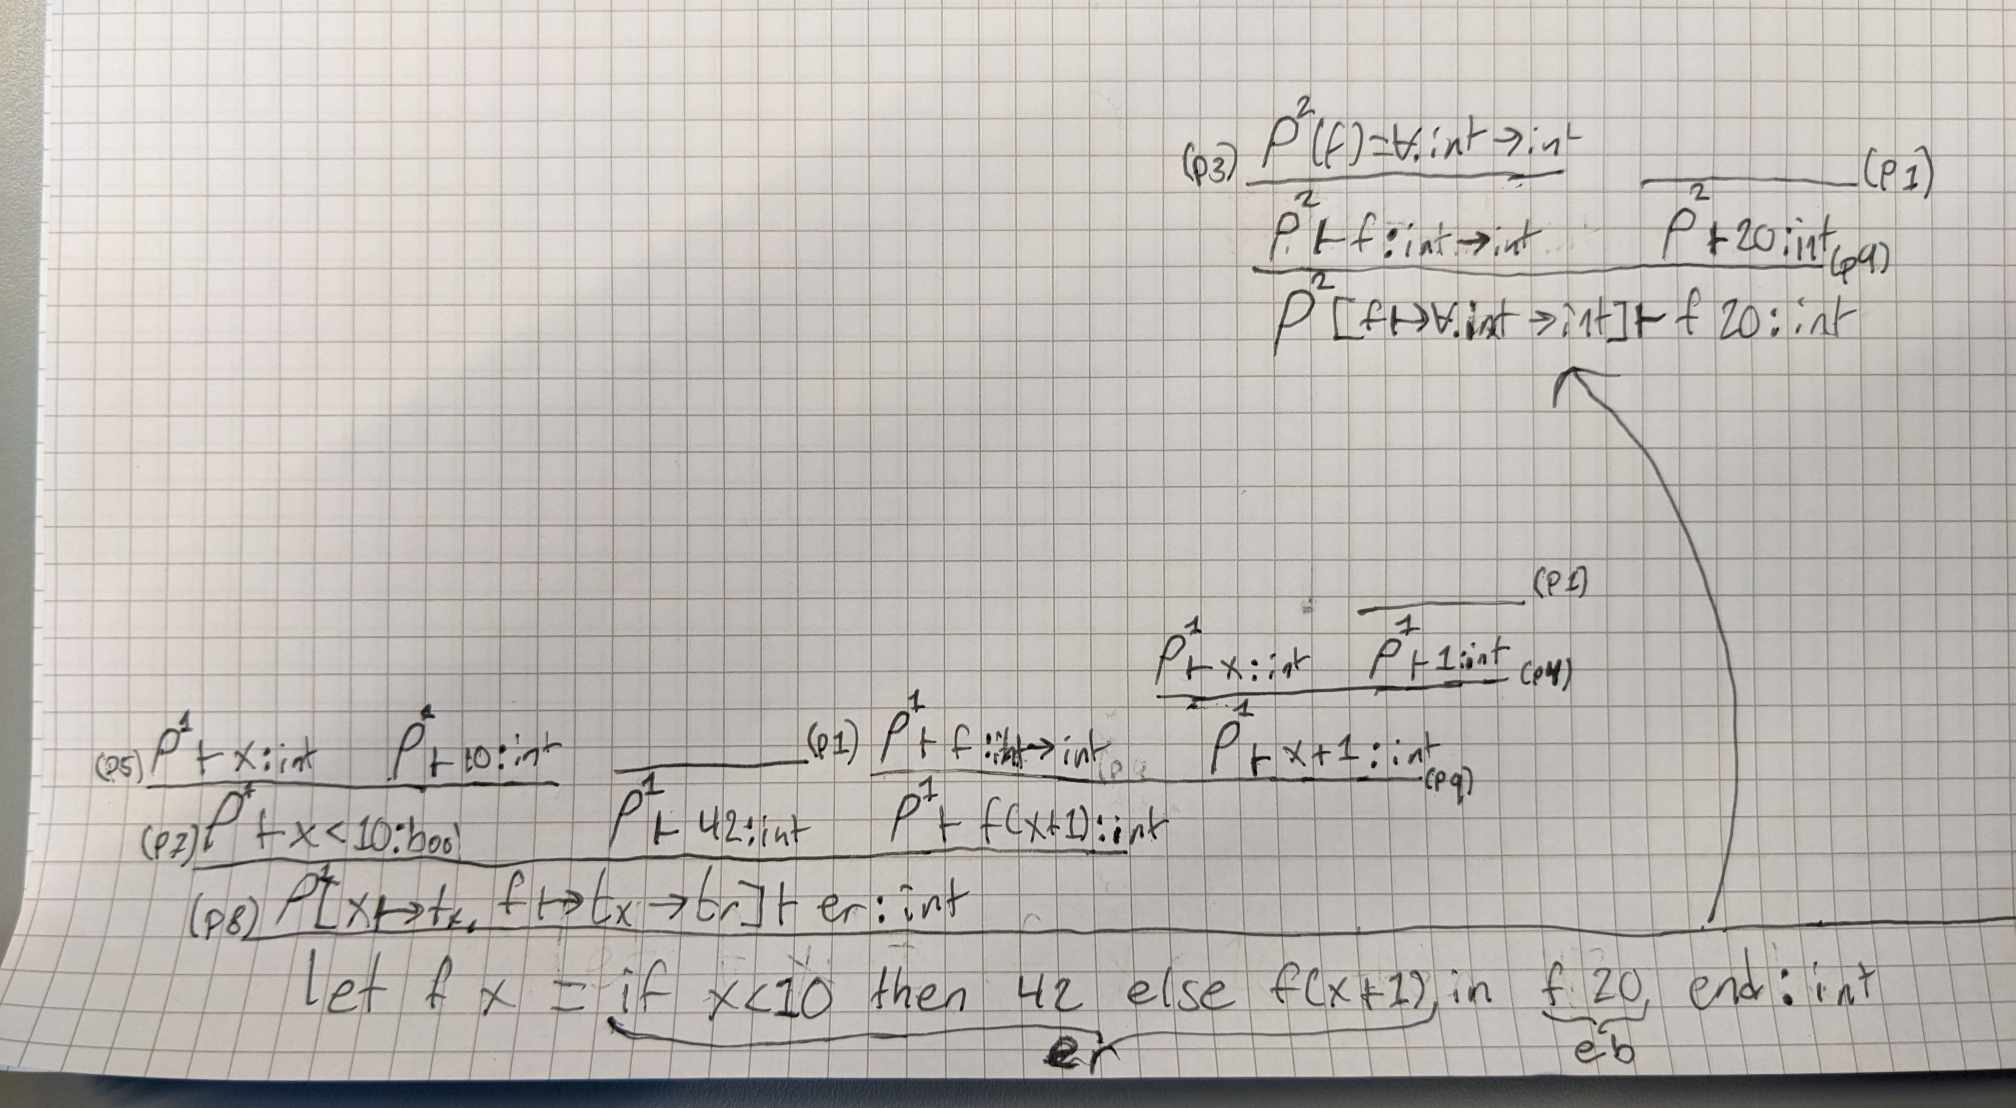 (p3) ρ²(f)=∀.int→int
(p1)
ρ²⊢f:int→int ρ²⊢20:int (p9)
ρ²[f↦∀.int→int]⊢f 20:int
(p1)
ρ¹⊢x:int ρ¹⊢1:int (p4)
(p5) ρ¹⊢x:int ρ¹⊢10:int (p1) ρ¹⊢f:int→int ρ¹⊢x+1:int (p9)
(p7) ρ¹⊢x<10:bool ρ¹⊢42:int ρ¹⊢f(x+1):int
(p8) ρ¹[x↦tx, f↦tx→tr]⊢er:int
let f x = if x<10 then 42 else f(x+1) in f 20 end:int
er eb